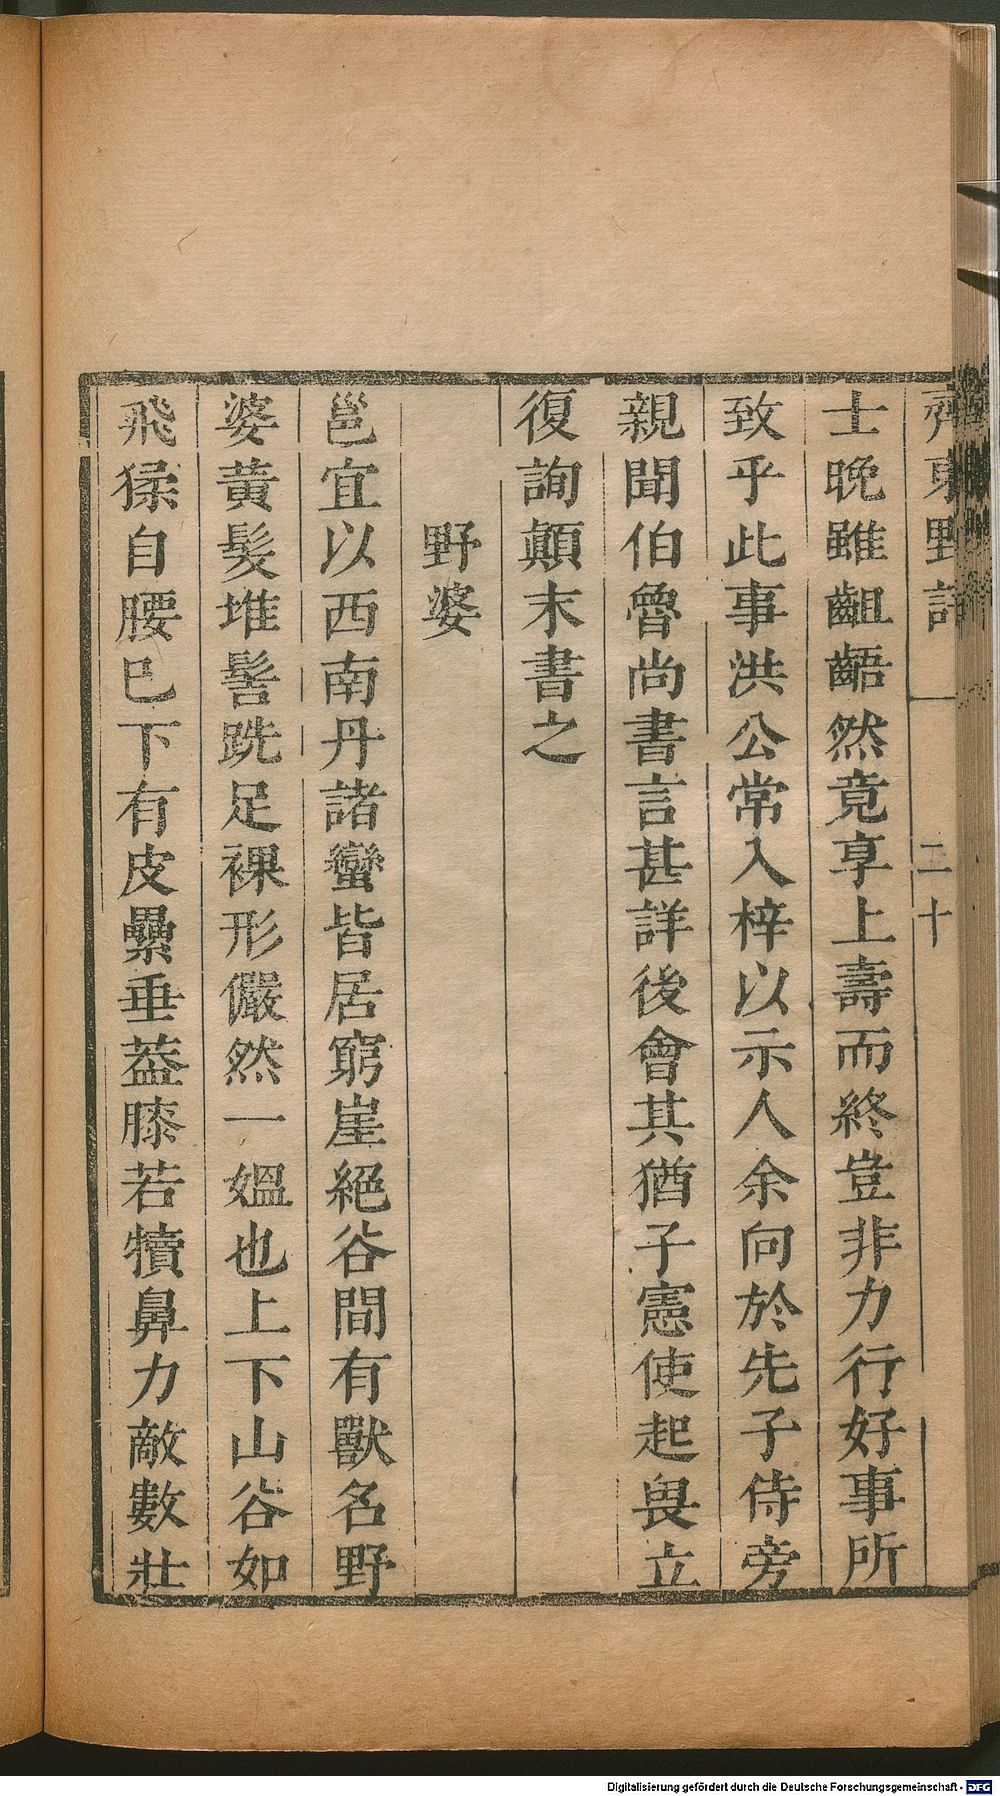 齊東野語 二十
士晩雖齟齬然竟享上壽而終豈非力行好事所
致乎此事洪公常入梓以示人余向於先子侍旁
親聞伯魯尚書言甚詳後會其猶子憲使起畏立
復詢顛末書之
野婆
邕宜以西南丹諸蠻皆居窮崖絕谷間有獸名野
婆黃髮堆髻跣足裸形儼然一媼也上下山谷如
飛猱自腰巳下有皮纍垂葢膝若犢鼻力敵數壯
Digitalisierung gefördert durch die Deutsche Forschungsgemeinschaft - DFG